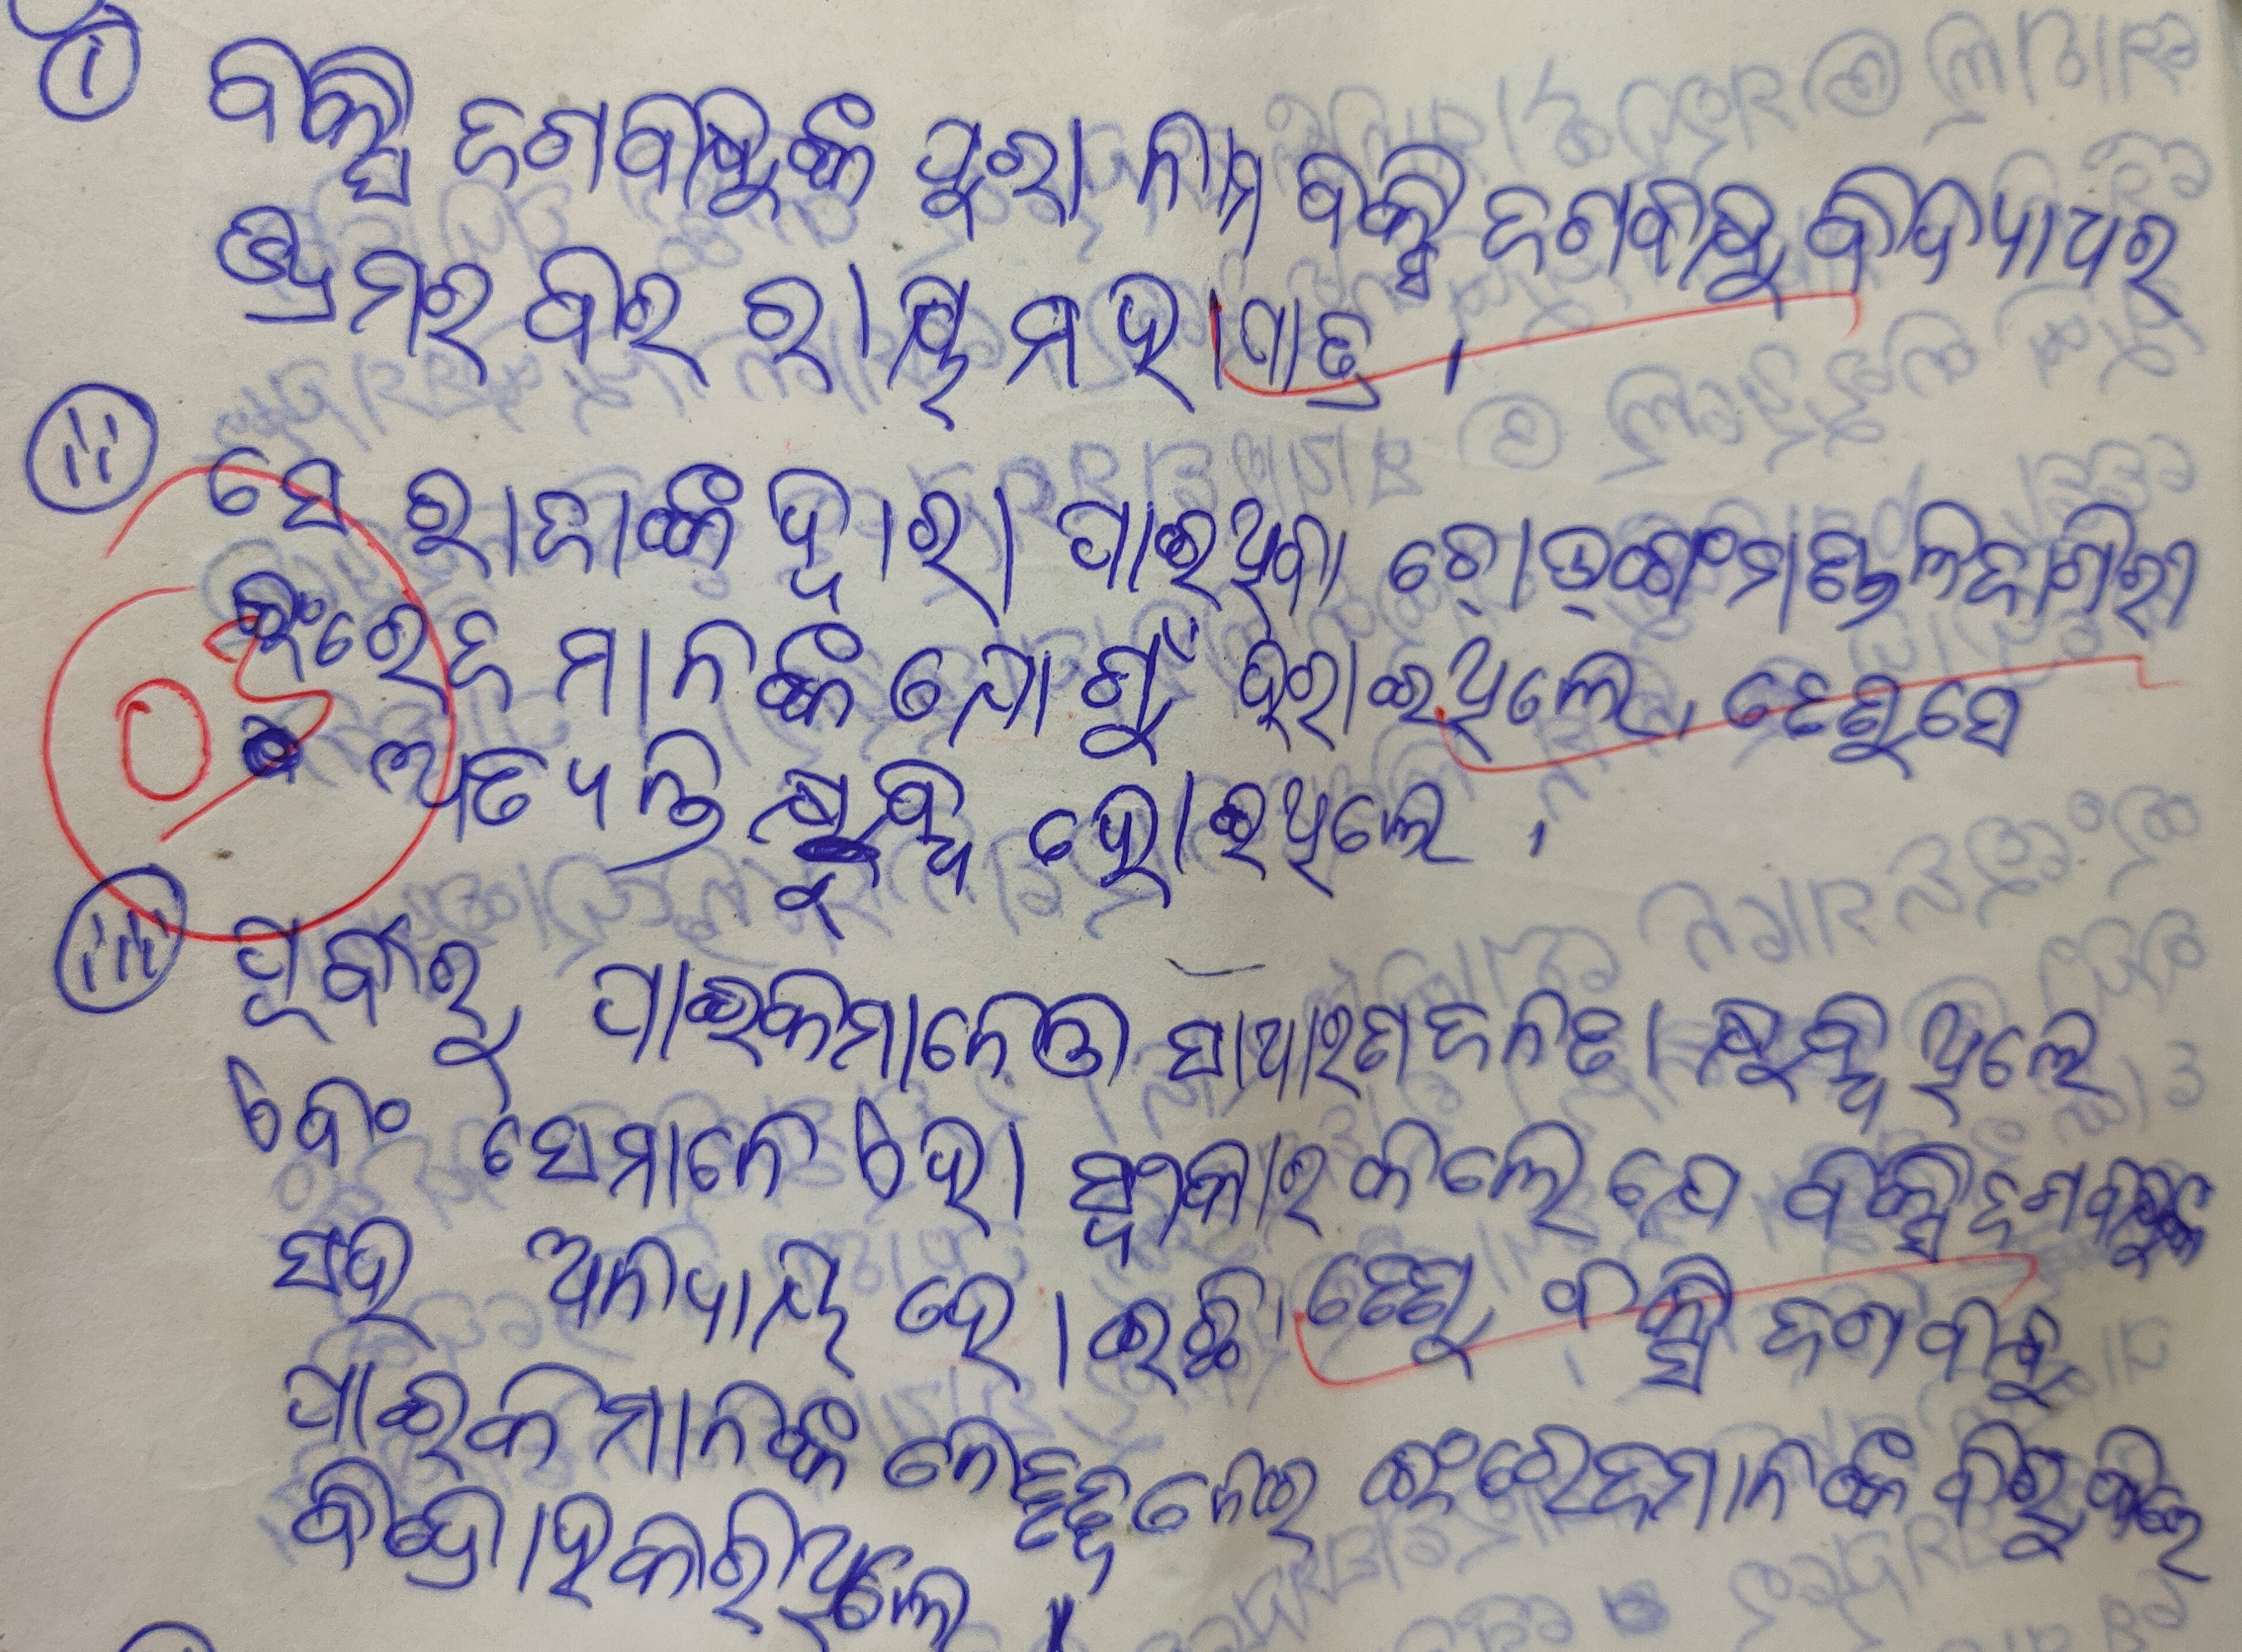 i ବକ୍ସି ଜଗବନ୍ଧୁଙ୍କ ପୁରା ନାମ ବକ୍ସି ଜଗବନ୍ଧୁ ବିଦ୍ୟାଧର
ଭ୍ରମର ବୀର ରାୟ ମହାପାତ୍ର ।
ii ସେ ରାଜାଙ୍କ ଦ୍ୱାରା ପାଇଥିବା
ଇଂରେଜ ମାନଙ୍କ ଯୋଗୁଁ ହରାଇଥିଲେ । ତେଣୁ ସେ
05 ଅତ୍ୟନ୍ତ କ୍ଷୁବ୍ଧ ହୋଇଥିଲେ ।
iii ପୂର୍ବରୁ ପାଇକମାନେ ଓ ସାଧାରଣ ଜନତା କ୍ଷୁବ୍ଧ ଥିଲେ
ଏବଂ ସେମାନେ ଏହା ସ୍ୱୀକାର କଲେ ଯେ ବକ୍ସି ଜଗବନ୍ଧୁଙ୍କ
ସହ ଅନ୍ୟାୟ ହୋଇଛି । ତେଣୁ ବକ୍ସି ଜଗବନ୍ଧୁ
ପାଇକମାନଙ୍କ ନେତୃତ୍ୱ ନେଇ ଇଂରେଜମାନଙ୍କ ବିରୁଦ୍ଧରେ
ବିଦ୍ରୋହ କରିଥିଲେ ।